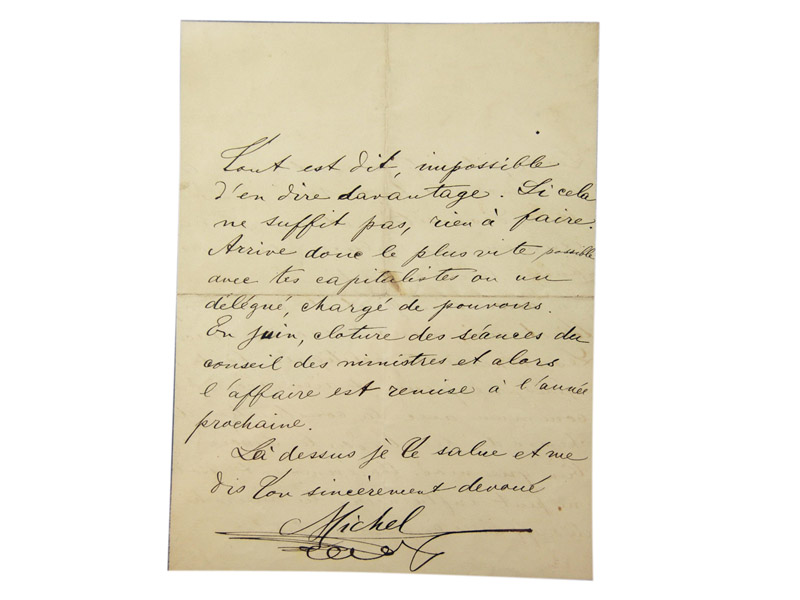 Tout est dit, impossible
d'en dire davantage. Si cela
ne suffit pas, rien à faire.
Arrive donc le plus vite possible
avec tes capitalistes ou un
délégué, chargé de pouvoirs.
En juin, cloture des séances du
conseil des ministres et alors
l'affaire est remise à l'année
prochaine.
Là dessus je te salue et me
dis ton sincèrement devoué
Michel